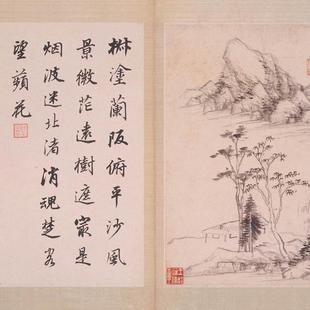 椒塗蘭阪俯平沙風
景微茫遠樹遮㝡是
烟波迷北渚消魂楚客
望蘋花